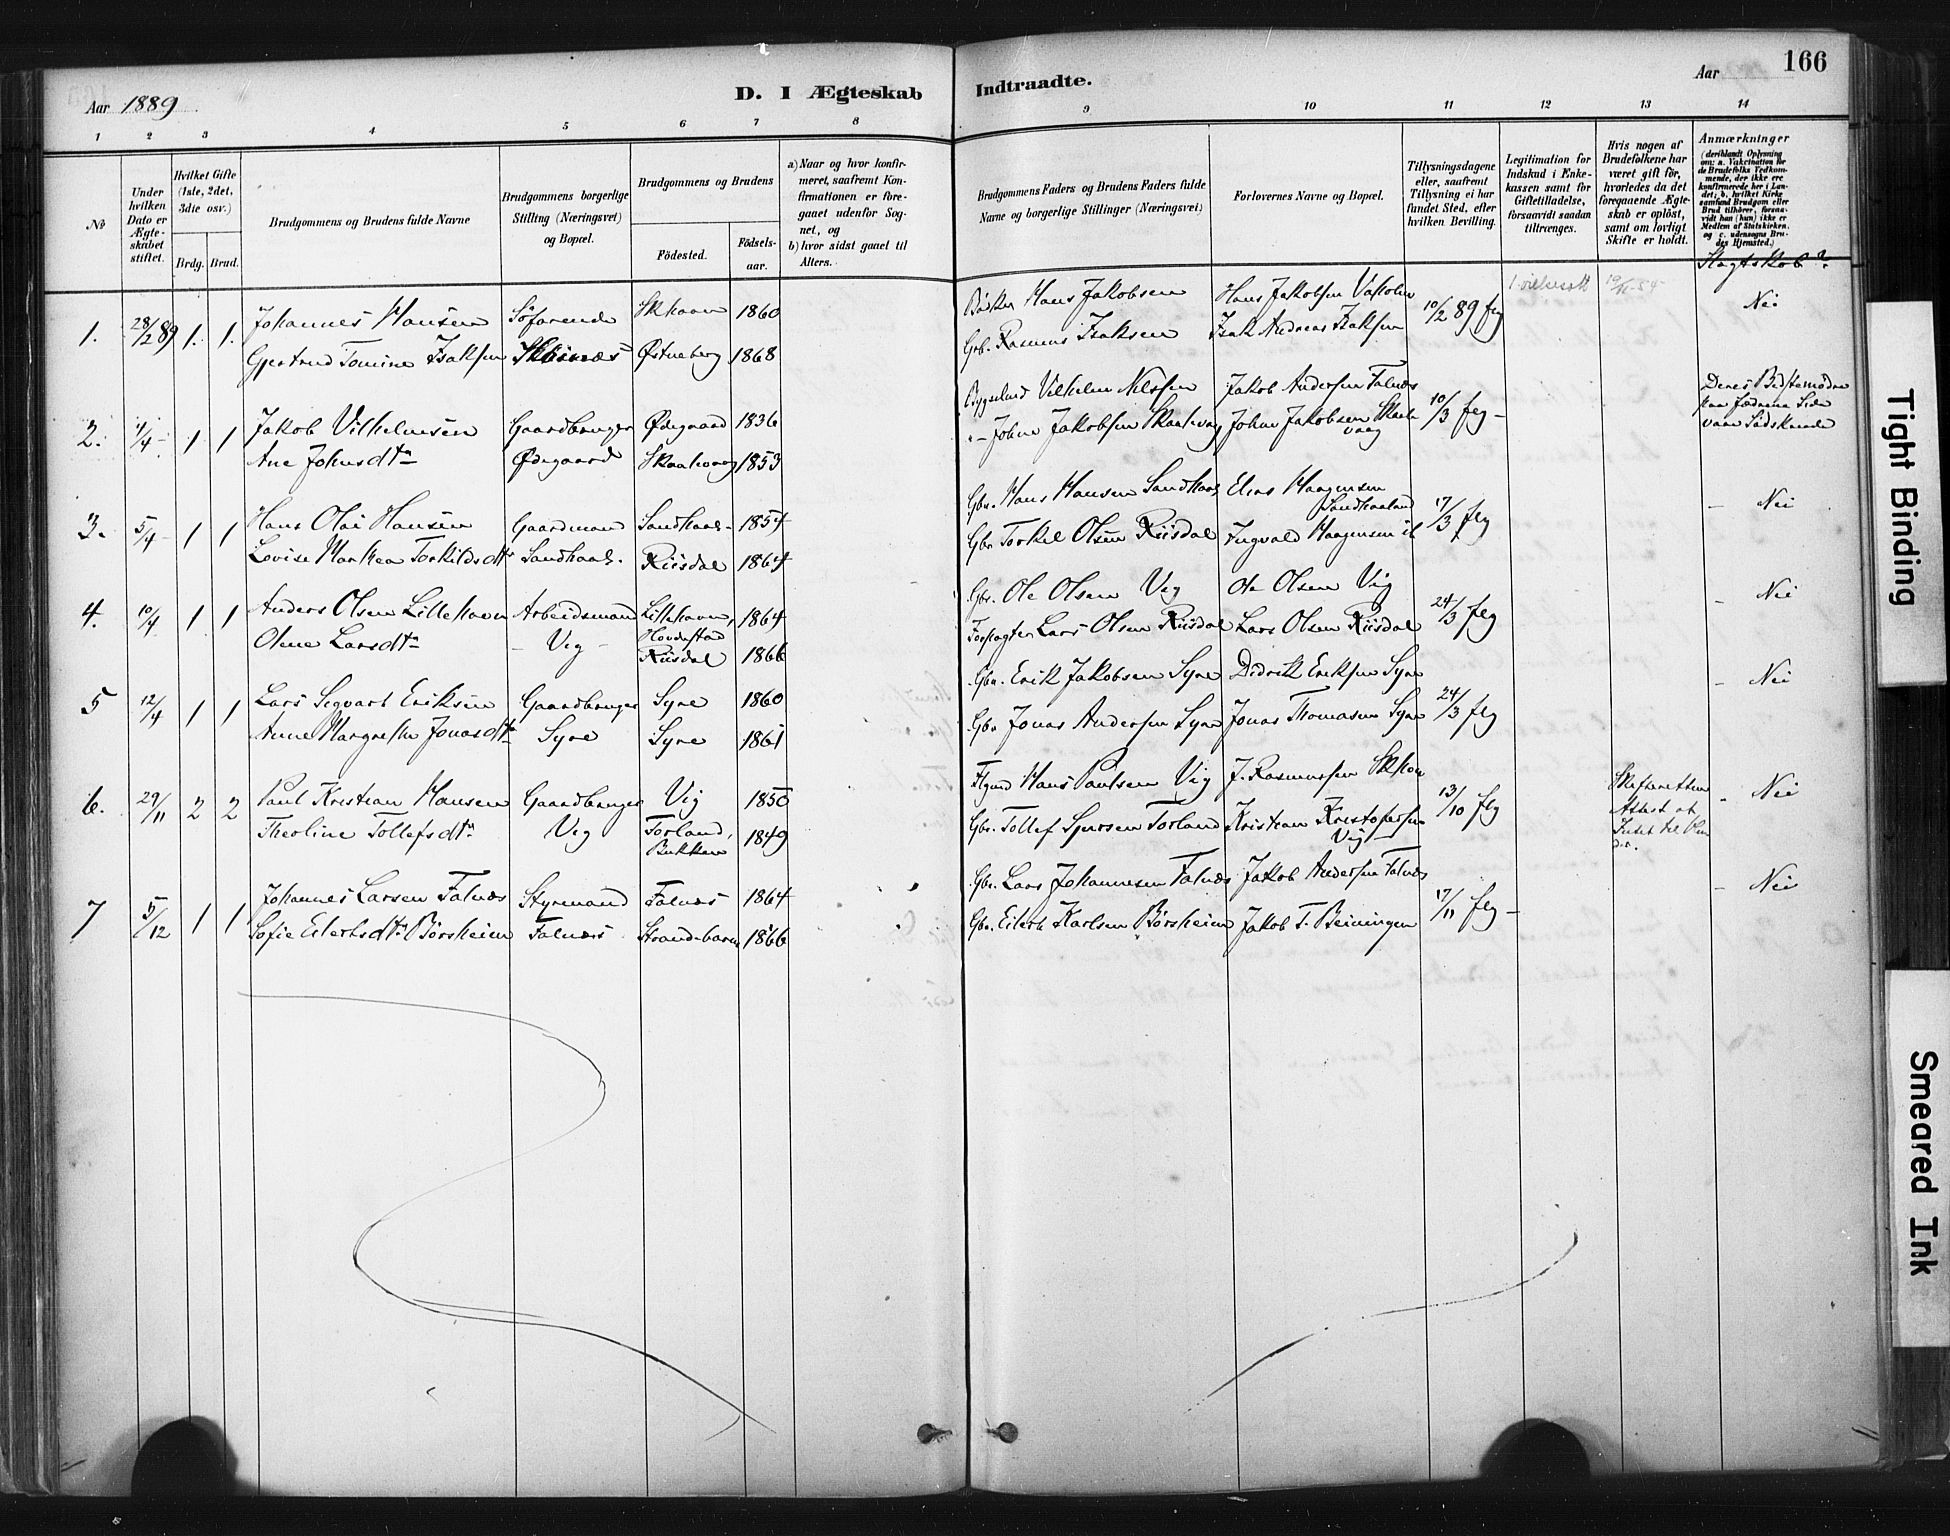 Aar 1889
D. I Ægteskab
Indtraadte.
Aar
166
1 2 3 4 5 6 7 8
9 10 11 12 13 14
No
Under hvilken Dato er Ægteskabet stiftet.
Hvilket Gifte (1ste, 2det, 3die osv.)
Brdg. Brud.
Brudgommens og Brudens fulde Navne
Brudgommens borgerlige Stilling (Næringsvei) og Bopæl.
Brudgommens og Brudens
Födested.
Födselsaar.
a) Naar og hvor konfirmeret, saafremt Konfirmationen er foregaaet udenfor Sognet, og
b) hvor sidst gaaet til Alters.
Brudgommens Faders og Brudens Faders fulde Navne og borgerlige Stillinger (Næringsvei)
Forlovernes Navne og Bopæl.
Tillysningsdagene eller, saafremt Tillysning ei har fundet Sted, efter hvilken Bevilling.
Legitimation for Indskud i Enkekassen samt for Giftetilladelse, forsaavidt saadan tiltrænges.
Hvis nogen af Brudefolkene har været gift för, hvorledes da det foregaaende Ægteskab er oplöst, samt om lovligt Skifte er holdt.
Anmærkninger
(deriblandt Oplysning om: a. Vakcination for de Brudefolks Vedkommende, der ikke ere konfirmerede her i Landet; b. hvilket Kirkesamfund Brudgom eller Brud tilhörer, forsaavidt han (hun) ikke er Medlem af Statskirken, og c. udensogns Brudes Hjemsted.)
Slægtskab?
1. 28/2 89 1. 1. Johannes Hansen Söfarende 1860
Gjertrud Tomine Isaksen 1868
Hans Jakobsen Hans Jakobsen
Gbr. Rasmus Isaksen Isak Andreas Isaksen
10/2 89 flg
Nei
2. 1/4 1 1 Jakob Vilhelmsen Gaardbruger Ødegaard 1836
Ane Johnsdtr Ødegaard 1853
Vilhelm Nilssen Jakob Andersen Falnæs
John Jakobsen John Jakobsen
10/3 flg
Deres Bestemødre paa Fædrene Side vare Södskende
3. 5/4 1 1 Hans Olai Hansen Gaardmand Sandhaal. 1854
Lovise Marthea Torkildsdtr Sandhaal. Riisdal 1864
Gbr. Hans Hansen Elias Haagensen Sandhaaland
Gbr Torkel Olsen Riisdal Ingvald Haagensen
17/3 flg
Nei
4. 10/4 1 1 Anders Olsen Lillehavn Arbeidsmand Lillehavn, 1864
Olene Larsdtr Vig Riisdal 1866
Gbr. Ole Olsen Vig Ole Olsen Vig
Lars Olsen Riisdal Lars Olsen Riisdal
24/3 flg
Nei
5 12/4 1 1 Lars Segvart Eriksen Gaardbruger Syre 1860
Anne Margrethe Jonasdtr Syre Syre 1861
Gbr. Erik Jakobsen Syre Didrik Eriksen Syre
Gbr Jonas Andersen Syre Jonas Thomasen Syre
24/3 flg
Nei
6. 29/11 2 2 Paul Kristian Hansen Gaardbruger Vig 1850
Theoline Tollefsdtr Vig Torland, 1849
Hans Paulsen Vig J. Rasmussen
Gbr. Tollef Torland Kristian Kristofersen Vig
13/10 flg
Skifterettens Attest
Nei
7 5/12 1 1 Johannes Larsen Falnæs Styrmand Falnæs 1864
Sofie Eilertsdtr Börsheim Falnæs Strandebarm 1866
Gbr. Lars Johannesen Falnæs Jakob Andersen Falnæs
Gbr. Eilert Karlsen Börsheim Jakob T. Beiningen
17/11 flg
Nei
Tight Binding
Smeared Ink